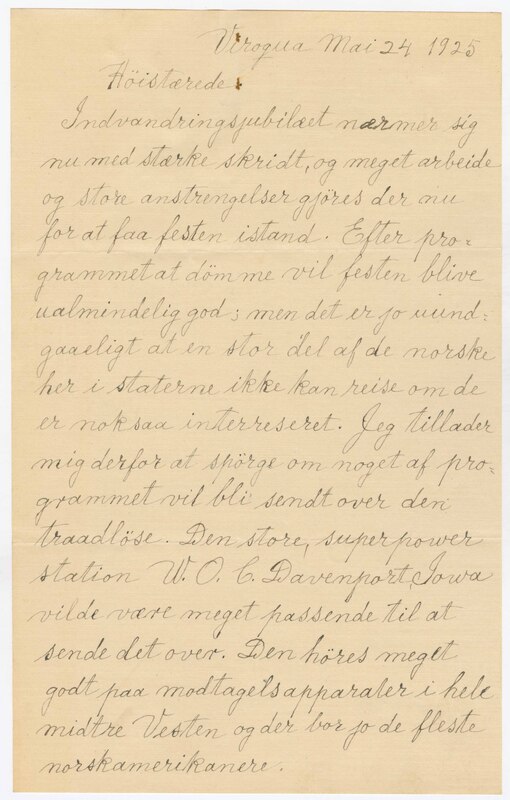 Viroqua Mai 24 1925
Höistærede:
Indvandringsjubilæet nærmer sig
nu med stærke skridt, og meget arbeide
og store anstrengelser gjöres der nu
for at faa festen istand. Efter pro-
grammet at dömme vil festen blive
ualmindelig god; men det er jo uund-
gaaeligt at en stor del af de norske
her i staterne ikke kan reise om de
er noksaa interreseret. Jeg tillader
mig derfor at spörge om noget af pro-
grammet vil bli sendt over den
traadlöse. Den store, superpower
station W. O. C. Davenport, Iowa
vilde være meget passende til at
sende det over. Den höres meget
godt paa modtagelsapparater i hele
midtre Vesten og der bor jo de fleste
norskamerikanere.